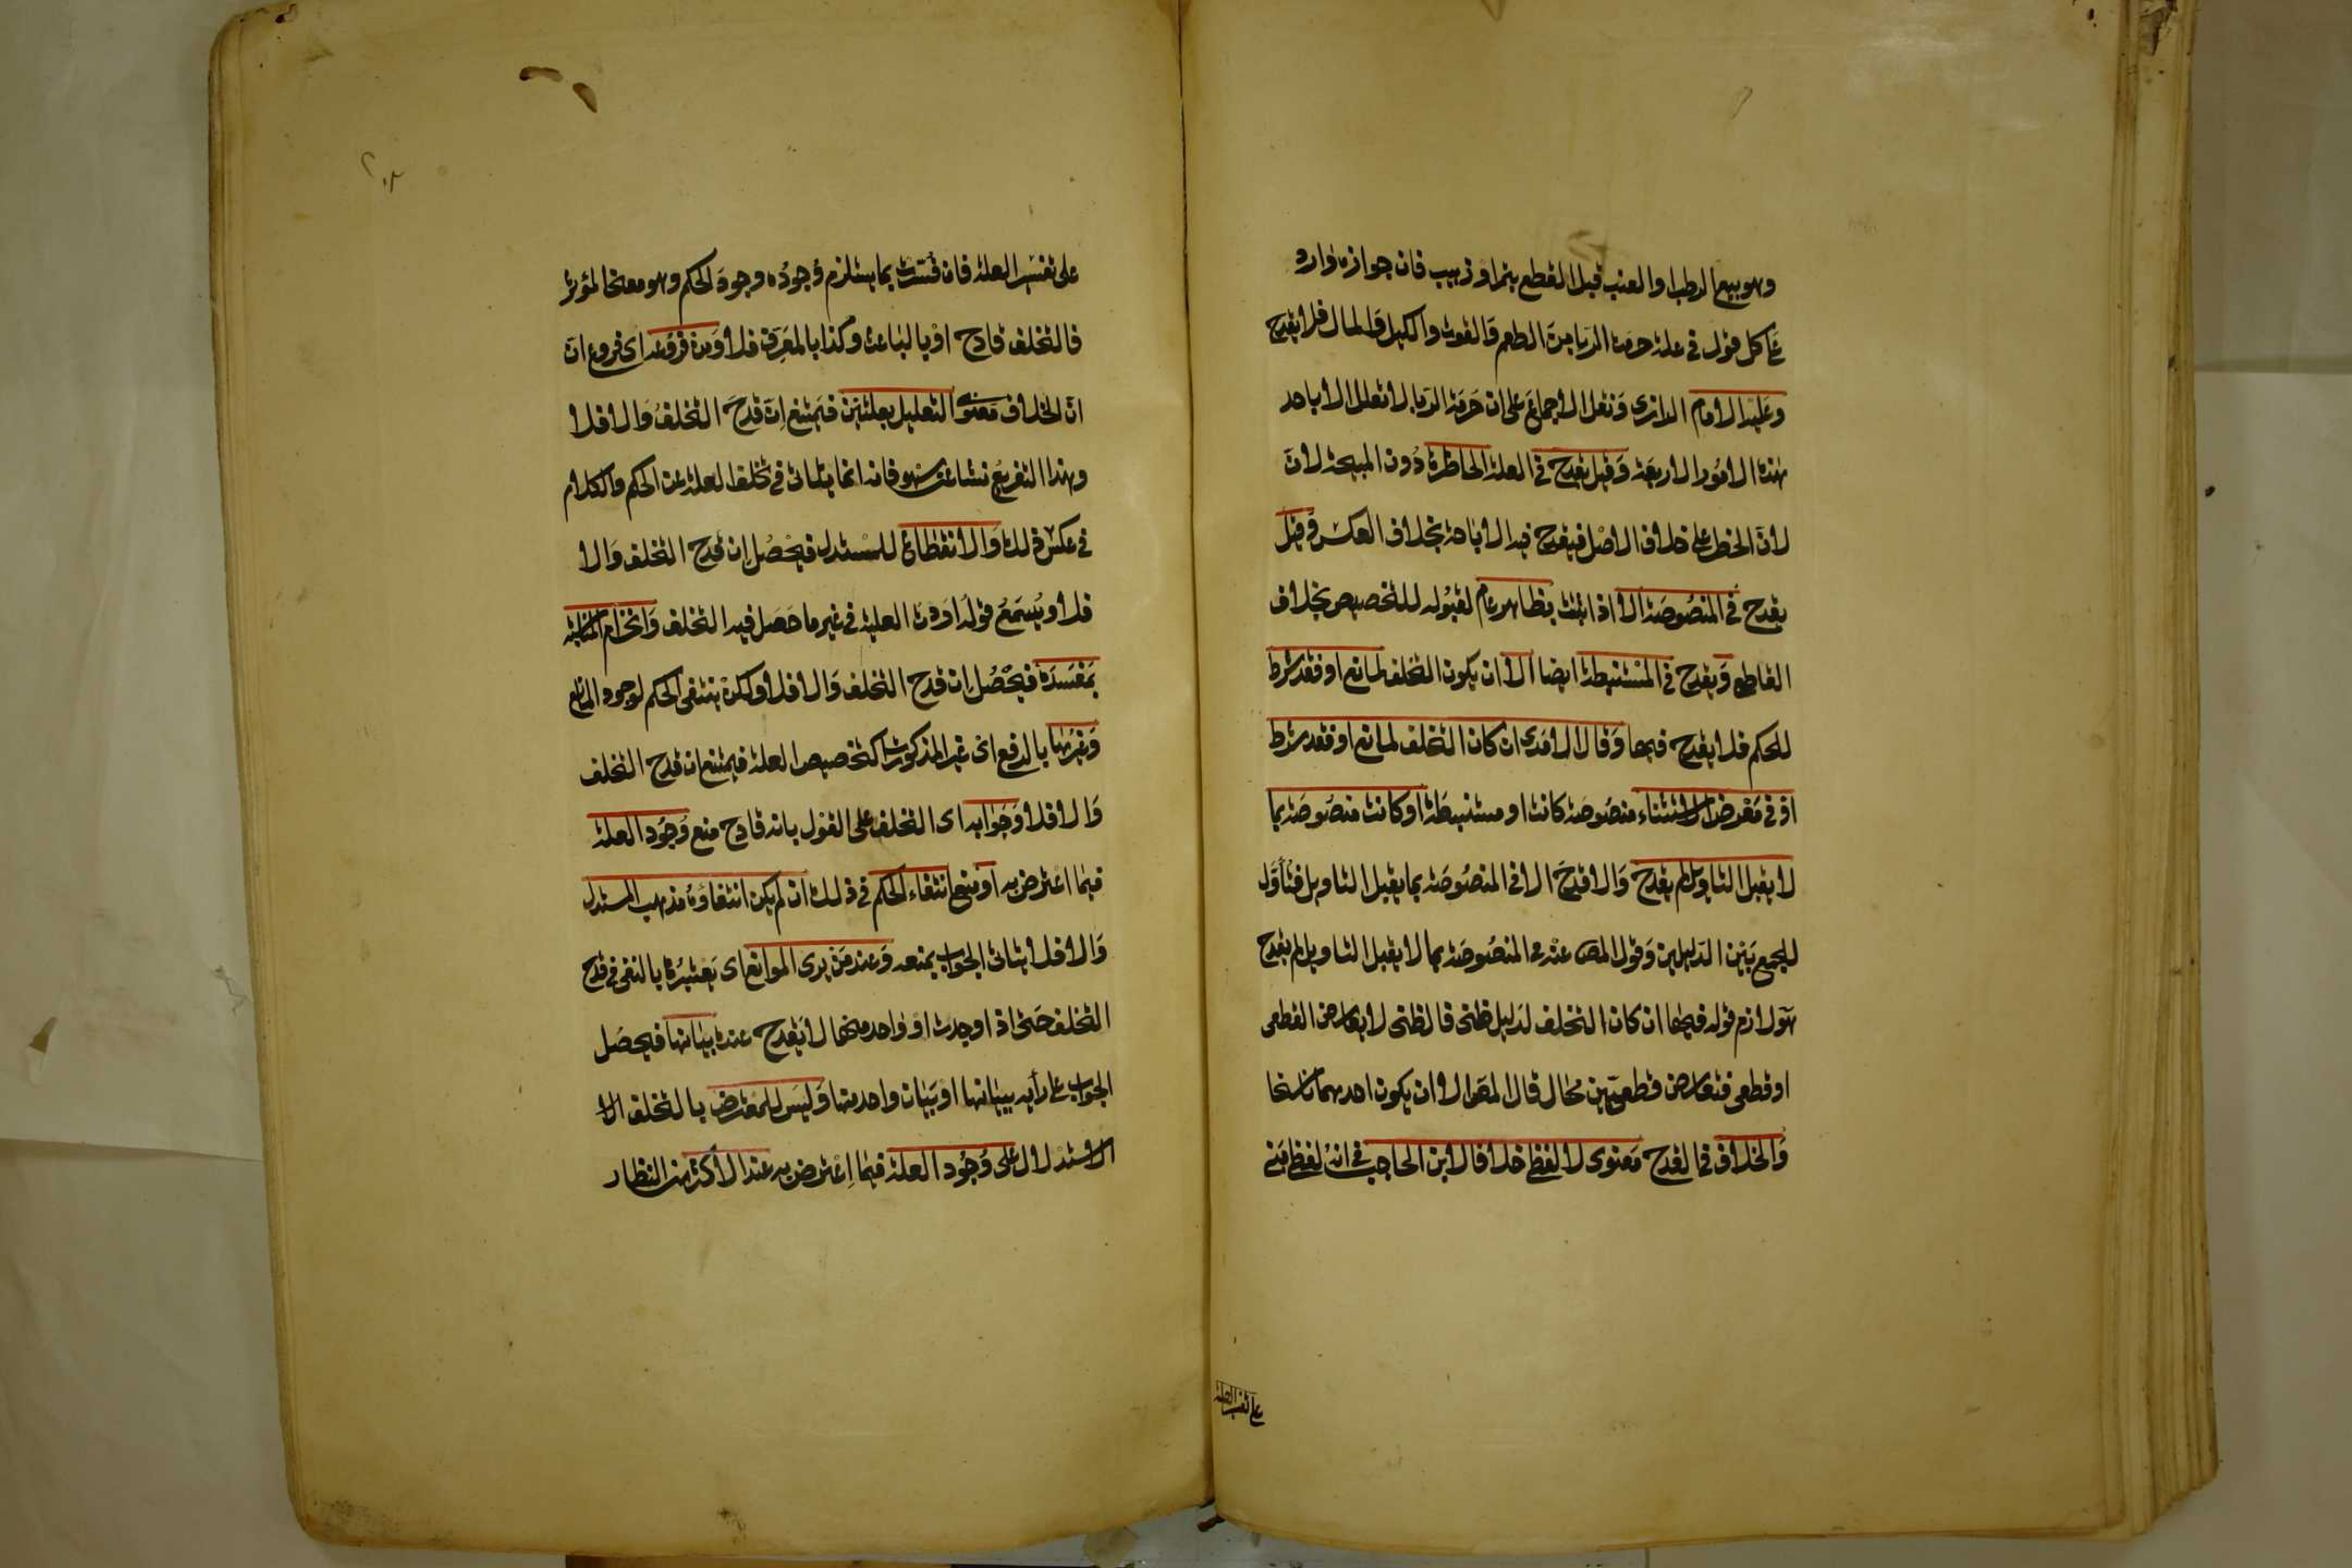 وهو بيع الرطب او العنب قبل القطع بتمر او زبيب فان جوازه وارد
على كل قول في علة حرمة الربا من الطعم والقوت والكيل والمال فلا يقدح
وعليه الامام الرازى ونقل الاجماع على ان حرمة الربا لا تعلل الا باحد
هذه الامور الاربعة وقيل يقدح في العلة الحاظرة دون المبيحة لان
لان الحظر على خلاف الاصل فيقدح فيه الاباحة بخلاف العكس وقيل
يقدح في المنصوصة الا اذا ثبتت بظاهر عام لقبوله للتخصيص بخلاف
القاطع ويقدح في المستنبطة ايضا الا ان يكون التخلف لمانع او فقد شرط
للحكم فلا يقدح فيها وقال الامدى ان كان التخلف لمانع او فقد شرط
او في معرض الاستثناء منصوصة كانت او مستنبطة او كانت منصوصة بما
لا يقبل التاويل لم يقدح والا قدح الا في المنصوصة بما يقبل التاويل فتأول
للجمع بين الدليلين وقول المص عنه في المنصوصة بما لا يقبل التاويل لم يقدح
هو لازم قوله فيها ان كان التخلف لدليل ظنى فالظنى لا يعارض القطعى
او قطعى فتعارض قطعيين محال قال المص الا ان يكون احدهما ناسخا
والخلاف في القدح معنوى لا لفظى خلافا لابن الحاجب في انه لفظى مبنى
على تفسير العلة
على تفسير العلة فان فسرت بما يستلزم وجوده وجود الحكم وهو معنى المؤثر
فالتخلف قادح او بالباعث وكذا بالمعرف فلا ومن فروعه اى فروع ان
ان الخلاف معنوى التعليل بعلتين فيمتنع ان قدح التخلف والا فلا
وهذا التفريع نشا عن سهو فانه انما يتاتى في تخلف العلة عن الحكم والكلام
في عكس ذلك والانقطاع للمستدل فيحصل ان قدح التخلف والا
فلا ويسمع قوله اردت العلية في غير ما حصل فيه التخلف وانخرام المناسبة
بمفسدة فيحصل ان قدح التخلف والا فلا ولكن ينتفى الحكم لوجود المانع
وغيرها بالرفع اى غير المذكورات كتخصيص العلة فيمتنع ان قدح التخلف
والا فلا وجوابه اى التخلف على القول بانه قادح منع وجود العلة
فيما اعترض به او منع انتفاء الحكم في ذلك ان لم يكن انتفاوه مذهب المستدل
والا فلا يتاتى الجواب بمنعه وعند من يرى الموانع اى يعتبرها بالنفى في قدح
التخلف حتى اذا وجدت او واحد منها لا يقدح عنده بيانها فيحصل
الجواب على رأيه ببيانها او بيان واحد منها وليس للمعترض بالتخلف الا
الاستدلال على وجود العلة فيما اعترض به عند الاكثر من النظار